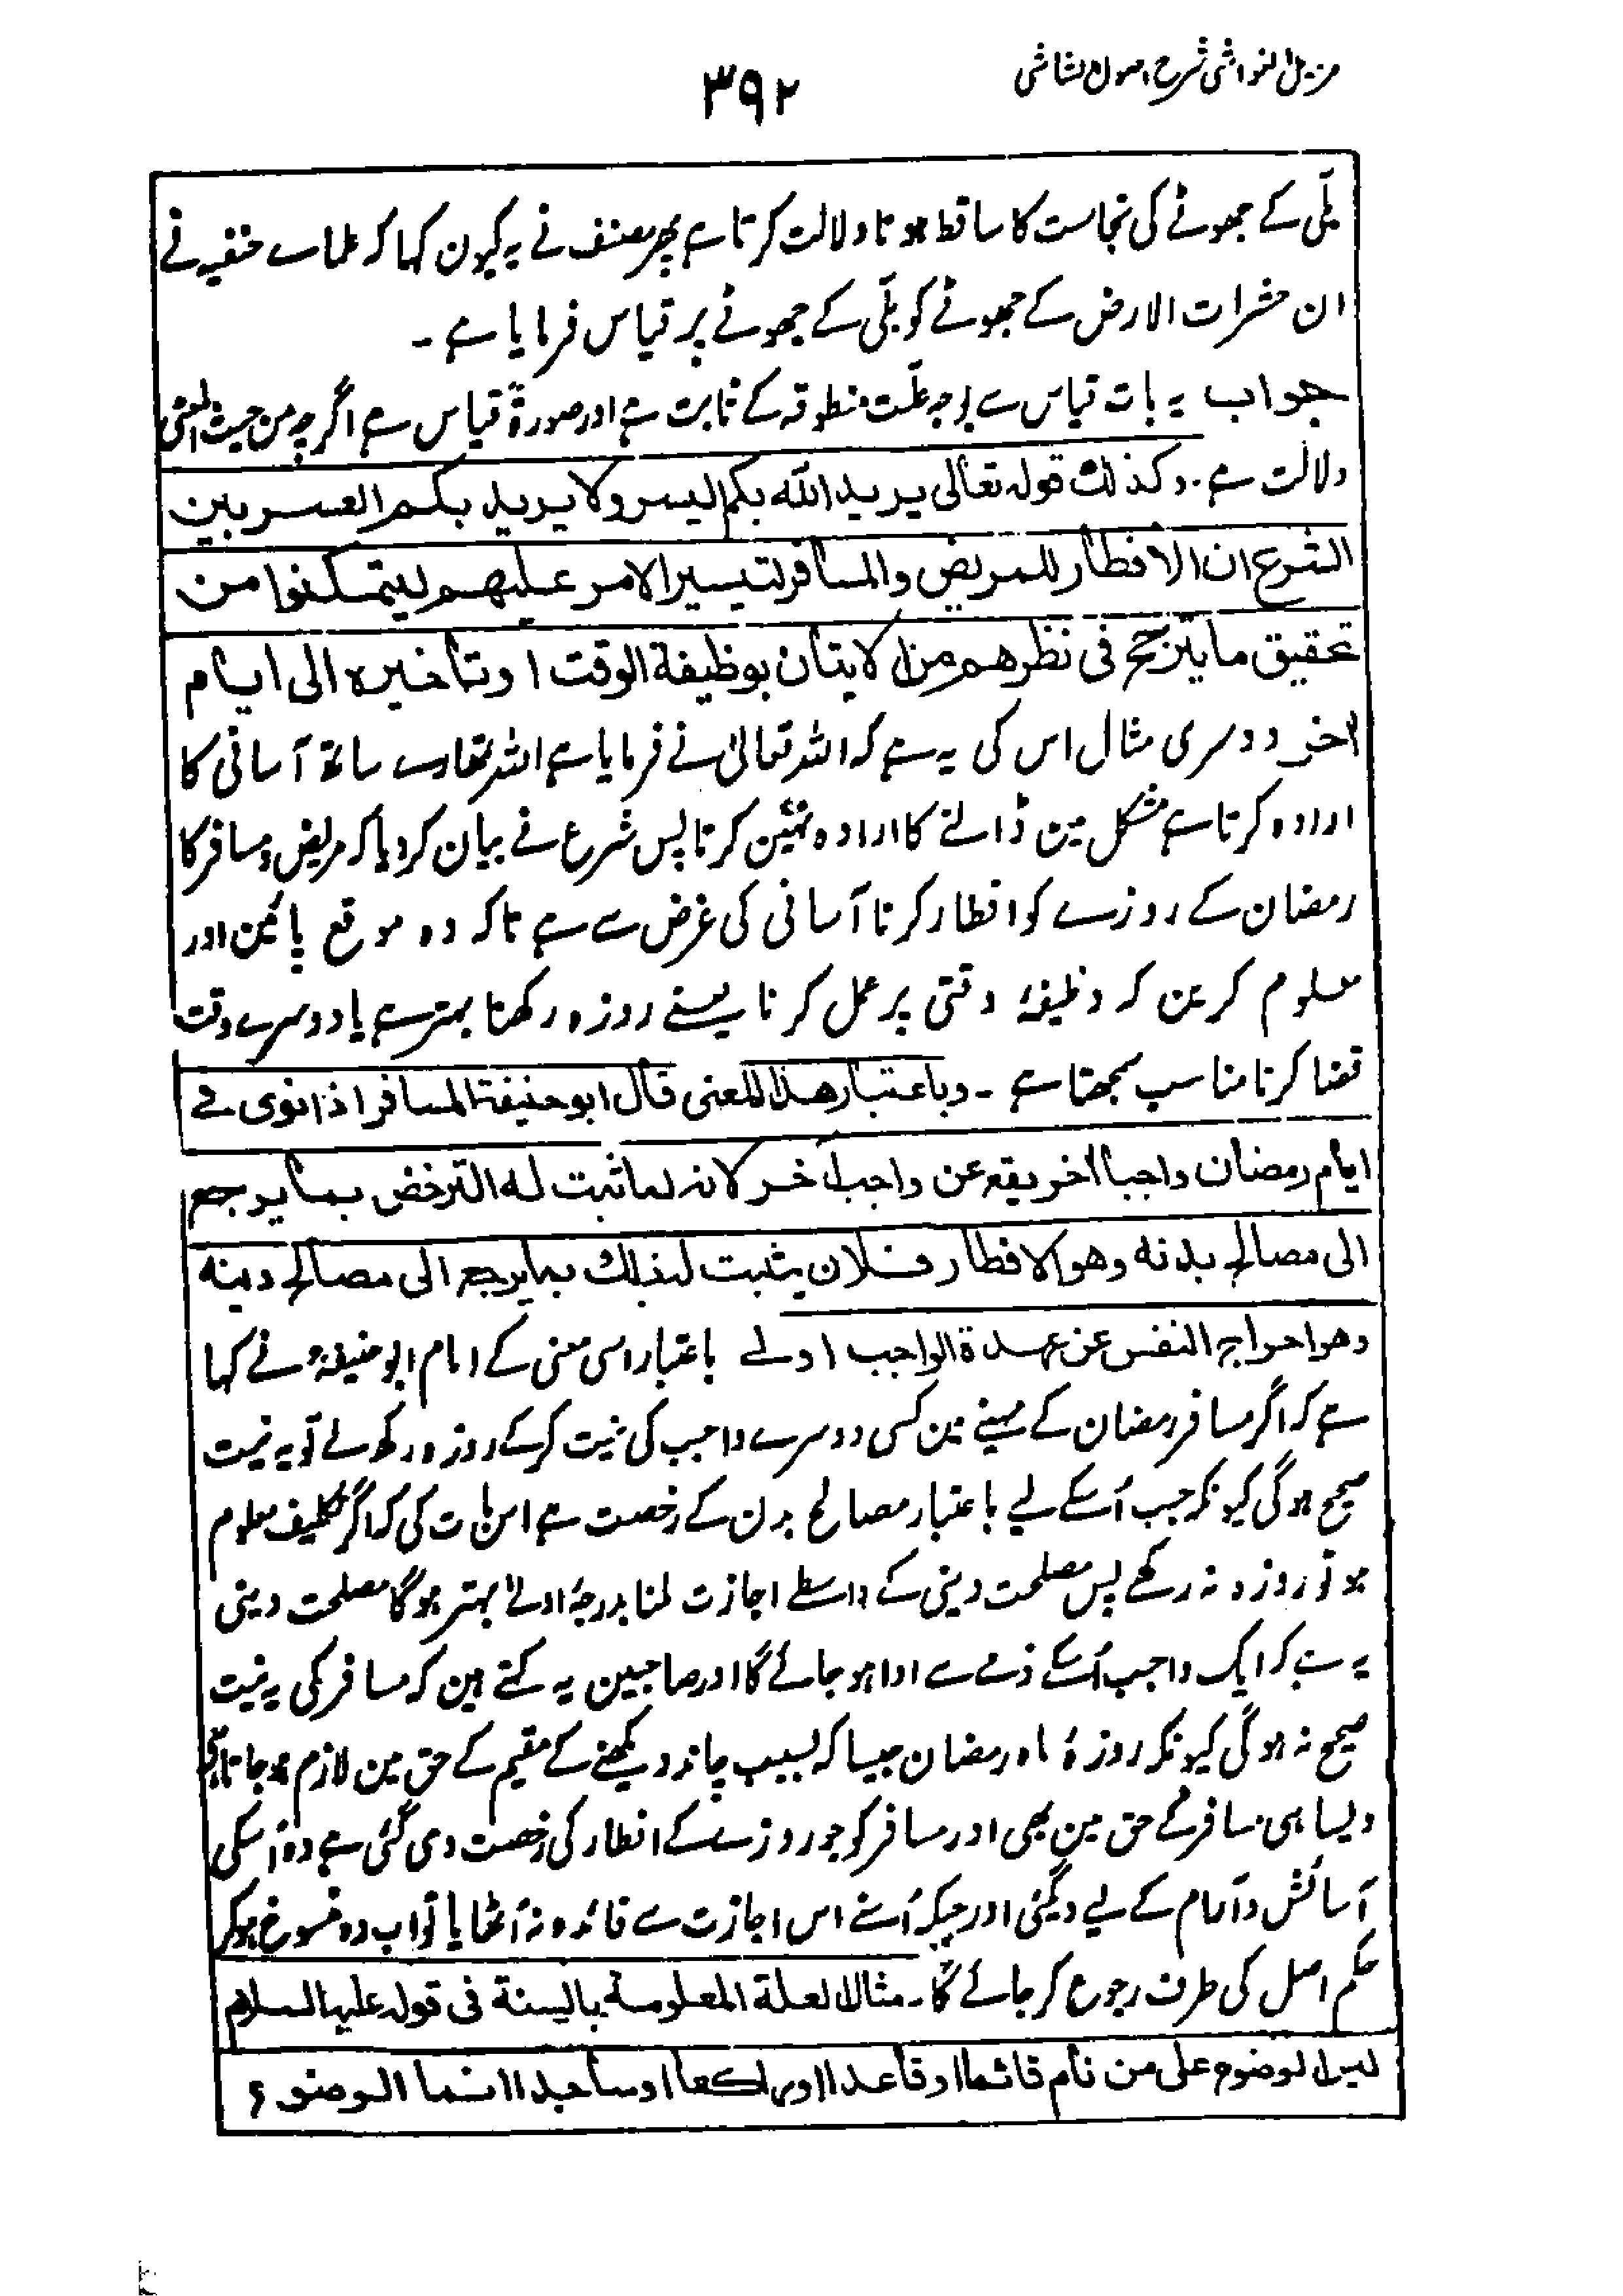 مزیل الغواشی شرح اصول الشاشی
۳۹۲
بلّی کے جھوٹے کی نجاست کا ساقط ہونا دلالت کرتا ہے پھر مصنف نے یہ کیون کہا کہ علماے حنفیہ نے
ان حشرات الارض کے جھوٹے کو بلّی کے جھوٹے پر قیاس فرمایا ہے ۔
جواب یہ بات قیاس سے بوجہ علّت منطوقہ کے ثابت ہے اور صورۃً قیاس ہے اگرچہ من حیث المعنی
دلالت ہے ۔ وکذلك قوله تعالی یرید الله بکم الیسر ولا یرید بکم العسر بین
الشرع ان الافطار للمریض والمسافر لتیسیر الامر علیهم لیتمکنوا من
تحقیق ما یترجح فی نظرهم من الاتیان بوظیفة الوقت او تأخیره الی ایام
اخر دوسری مثال اس کی یہ ہے کہ اللہ تعالیٰ نے فرمایا ہے اللہ تمھارے ساتھ آسانی کا
ارادہ کرتا ہے مشکل مین ڈالنے کا ارادہ نہین کرتا پس شرع نے بیان کردیا کہ مریض و مسافر کا
رمضان کے روزے کو افطار کرنا آسانی کی غرض سے ہے تاکہ وہ موقع پائین اور
معلوم کرین کہ وظیفۂ وقتی پر عمل کرنا یعنے روزہ رکھنا بہتر ہے یا دوسرے وقت
قضا کرنا مناسب سمجھتا ہے ۔ وباعتبار هذا المعنی قال ابو حنیفة المسافر اذا نوی فی
ایام رمضان واجبا اٰخر یقع عن واجب اٰخر لانه لما ثبت له الترخص بما یرجع
الی مصالح بدنه وهو الافطار فلان یثبت له ذلك بما یرجع الی مصالح دینه
وهو اخراج النفس عن عهدة الواجب اولے باعتبار اسی معنی کے امام ابو حنیفہؒ نے کہا
ہے کہ اگر مسافر رمضان کے مہینے مین کسی دوسرے واجب کی نیت کرکے روزہ رکھ لے تو یہ نیت
صحیح ہوگی کیونکر جب اُسکے لیے باعتبار مصالح بدن کے رخصت ہے اس بات کی کہ اگر تکلیف معلوم
ہو تو روزہ نہ رکھے پس مصلحت دینی کے واسطے اجازت ملنا بدرجۂ اولےٰ بہتر ہوگا مصلحت دینی
یہ ہے کہ ایک واجب اُسکے ذمے سے ادا ہو جائے گا اور صاحبین یہ کہتے ہین کہ مسافر کی یہ نیت
صحیح نہ ہوگی کیونکر روزۂ ماہ رمضان جیسا کہ بسبب چاند دیکھنے کے مقیم کے حق مین لازم ہو جاتا ہے
ویسا ہی مسافر کے حق مین بھی اور مسافر کو جو روزے کے افطار کی رخصت دی گئی ہے وہ اُسکی
آسائش و آرام کے لیے دیگئی اور جبکہ اُسنے اس اجازت سے فائدہ نہ اُٹھایا تو اب وہ منسوخ ہوکر
حکم اصل کی طرف رجوع کر جائے گا ۔ مثال العلة المعلومة بالسنة فی قوله علیه السلام
لیس الوضوء علی من نام قائما او قاعدا او راکعا او ساجدا انما الوضوء